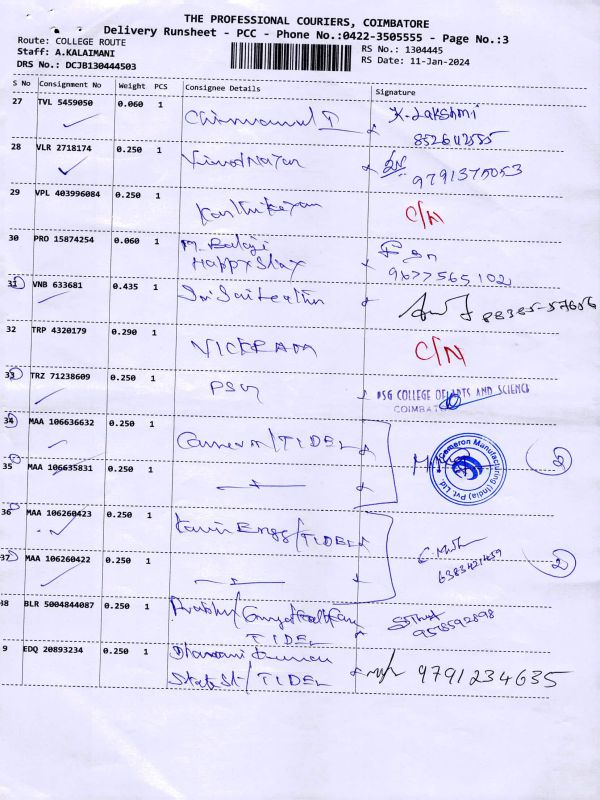 THE PROFESSIONAL COURIERS, COIMBATORE
Delivery Runsheet - PCC - Phone No.:0422-3505555 - Page No.:3
Route: COLLEGE ROUTE
Staff: A.KALAIMANI
DRS No.: DCJB130444503
RS No.: 1304445
RS Date: 11-Jan-2024
S No Consignment No Weight PCS Consignee Details Signature
27 TVL 5459050 0.060 1 K. Lakshmi
852642555
28 VLR 2718174 0.250 1
9791375053
29 VPL 403996084 0.250 1 Karthikeyan C/N
30 PRO 15874254 0.060 1 M. Balaji
Happy Stay
9677565102
31 VNB 633681 0.435 1 88385-57656
32 TRP 4320179 0.290 1 VICKRAM C/N
33 TRZ 71238609 0.250 1 PSG PSG COLLEGE OF ARTS AND SCIENCE
COIMBATO
34 MAA 106636632 0.250 1 Cameron/TIDEL
Cameron Manufacturing (India) Pvt. Ltd.
2
35 MAA 106635831 0.250 1
36 MAA 106260423 0.250 1 Engg/TIDEL
6383421459
2
37 MAA 106260422 0.250 1
38 BLR 5004844087 0.250 1
TIDEL
9 EDQ 20893234 0.250 1
State St/TIDEL 9791234635